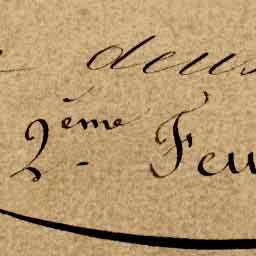 deux
2ème Feu